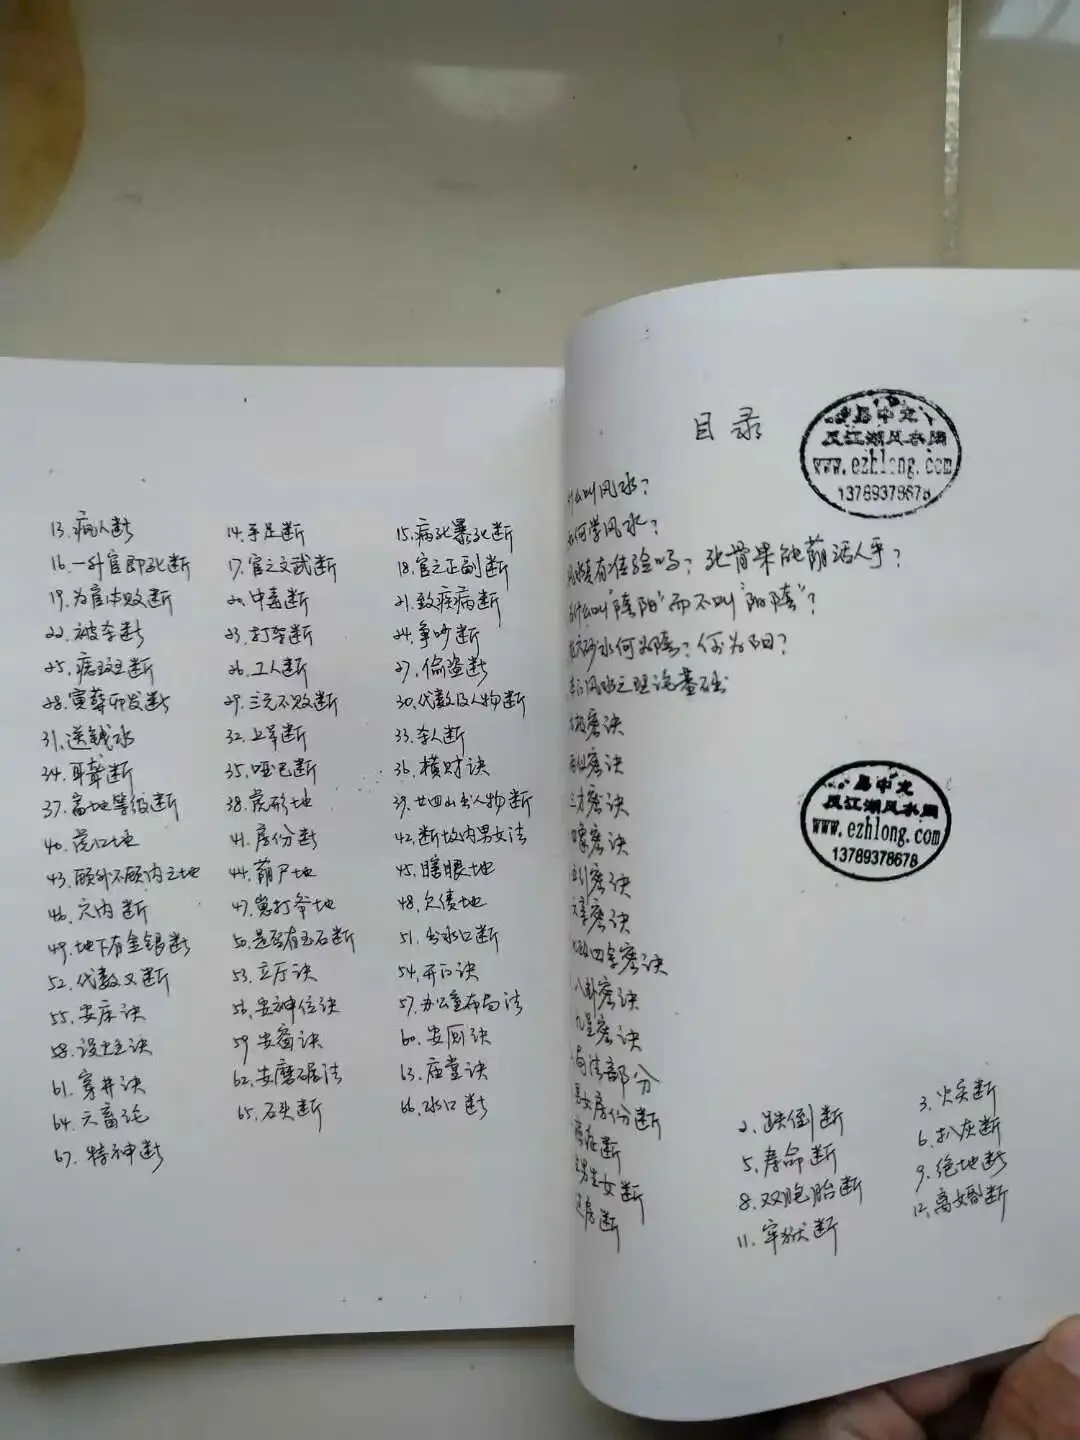 目录
什么叫风水？
如何学风水？
有准验吗？死骨果能荫活人乎？
什么叫“陰阳”而不叫“阳陰”？
砂水何为陰？何为阳？
风水之理论基础
太极密诀
两仪密诀
三才密诀
四象密诀
五行密诀
密诀
四字密诀
八卦密诀
九星密诀
局法部分
男女房份断
2.跌倒断
3.火灾断
癌症断
5.寿命断
6.扒灰断
生男生女断
8.双胞胎断
9.绝地断
断
11.牢狱断
12.离婚断
易中龙
风水网
www.ezhlong.com
13789378678
易中龙
风水网
www.ezhlong.com
13789378678
13.病人断 14.手足断 15.病死暴死断
16.一升官即死断 17.官之文武断 18.官之正副断
19.为官体败断 20.中毒断 21.致疾病断
22.被杀断 23.打杀断 24.争吵断
25.痣斑断 26.工人断 27.偷盗断
28.寅葬卯发断 29.三元不败断 30.代数及人物断
31.送钱水 32.上吊断 33.杀人断
34.耳聋断 35.哑巴断 36.横财诀
37.富地等级断 38.虎形地 39.廿四山出人物断
40.虎口地 41.房份断 42.断坟内男女法
43.顾外不顾内之地 44.荫尸地 45.瞎眼地
46.穴内断 47.崽打爷地 48.欠债地
49.地下有金银断 50.是否有玉石断 51.出水口断
52.代数又断 53.立厅诀 54.开门诀
55.安床诀 56.安神位诀 57.办公室布局法
58.设灶诀 59.安窗诀 60.安厕诀
61.穿井诀 62.安磨碾法 63.庙堂诀
64.六畜诀 65.石头断 66.水口断
67.特神断